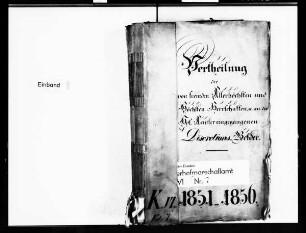 Einband
Vertheilung
der
von fremden Allerhöchsten und
Höchsten Herrschaften, u. an der
eingegangenen
Discretions Gelder.
erhofmarschallamt
VI Nr. 7
1851-1856.